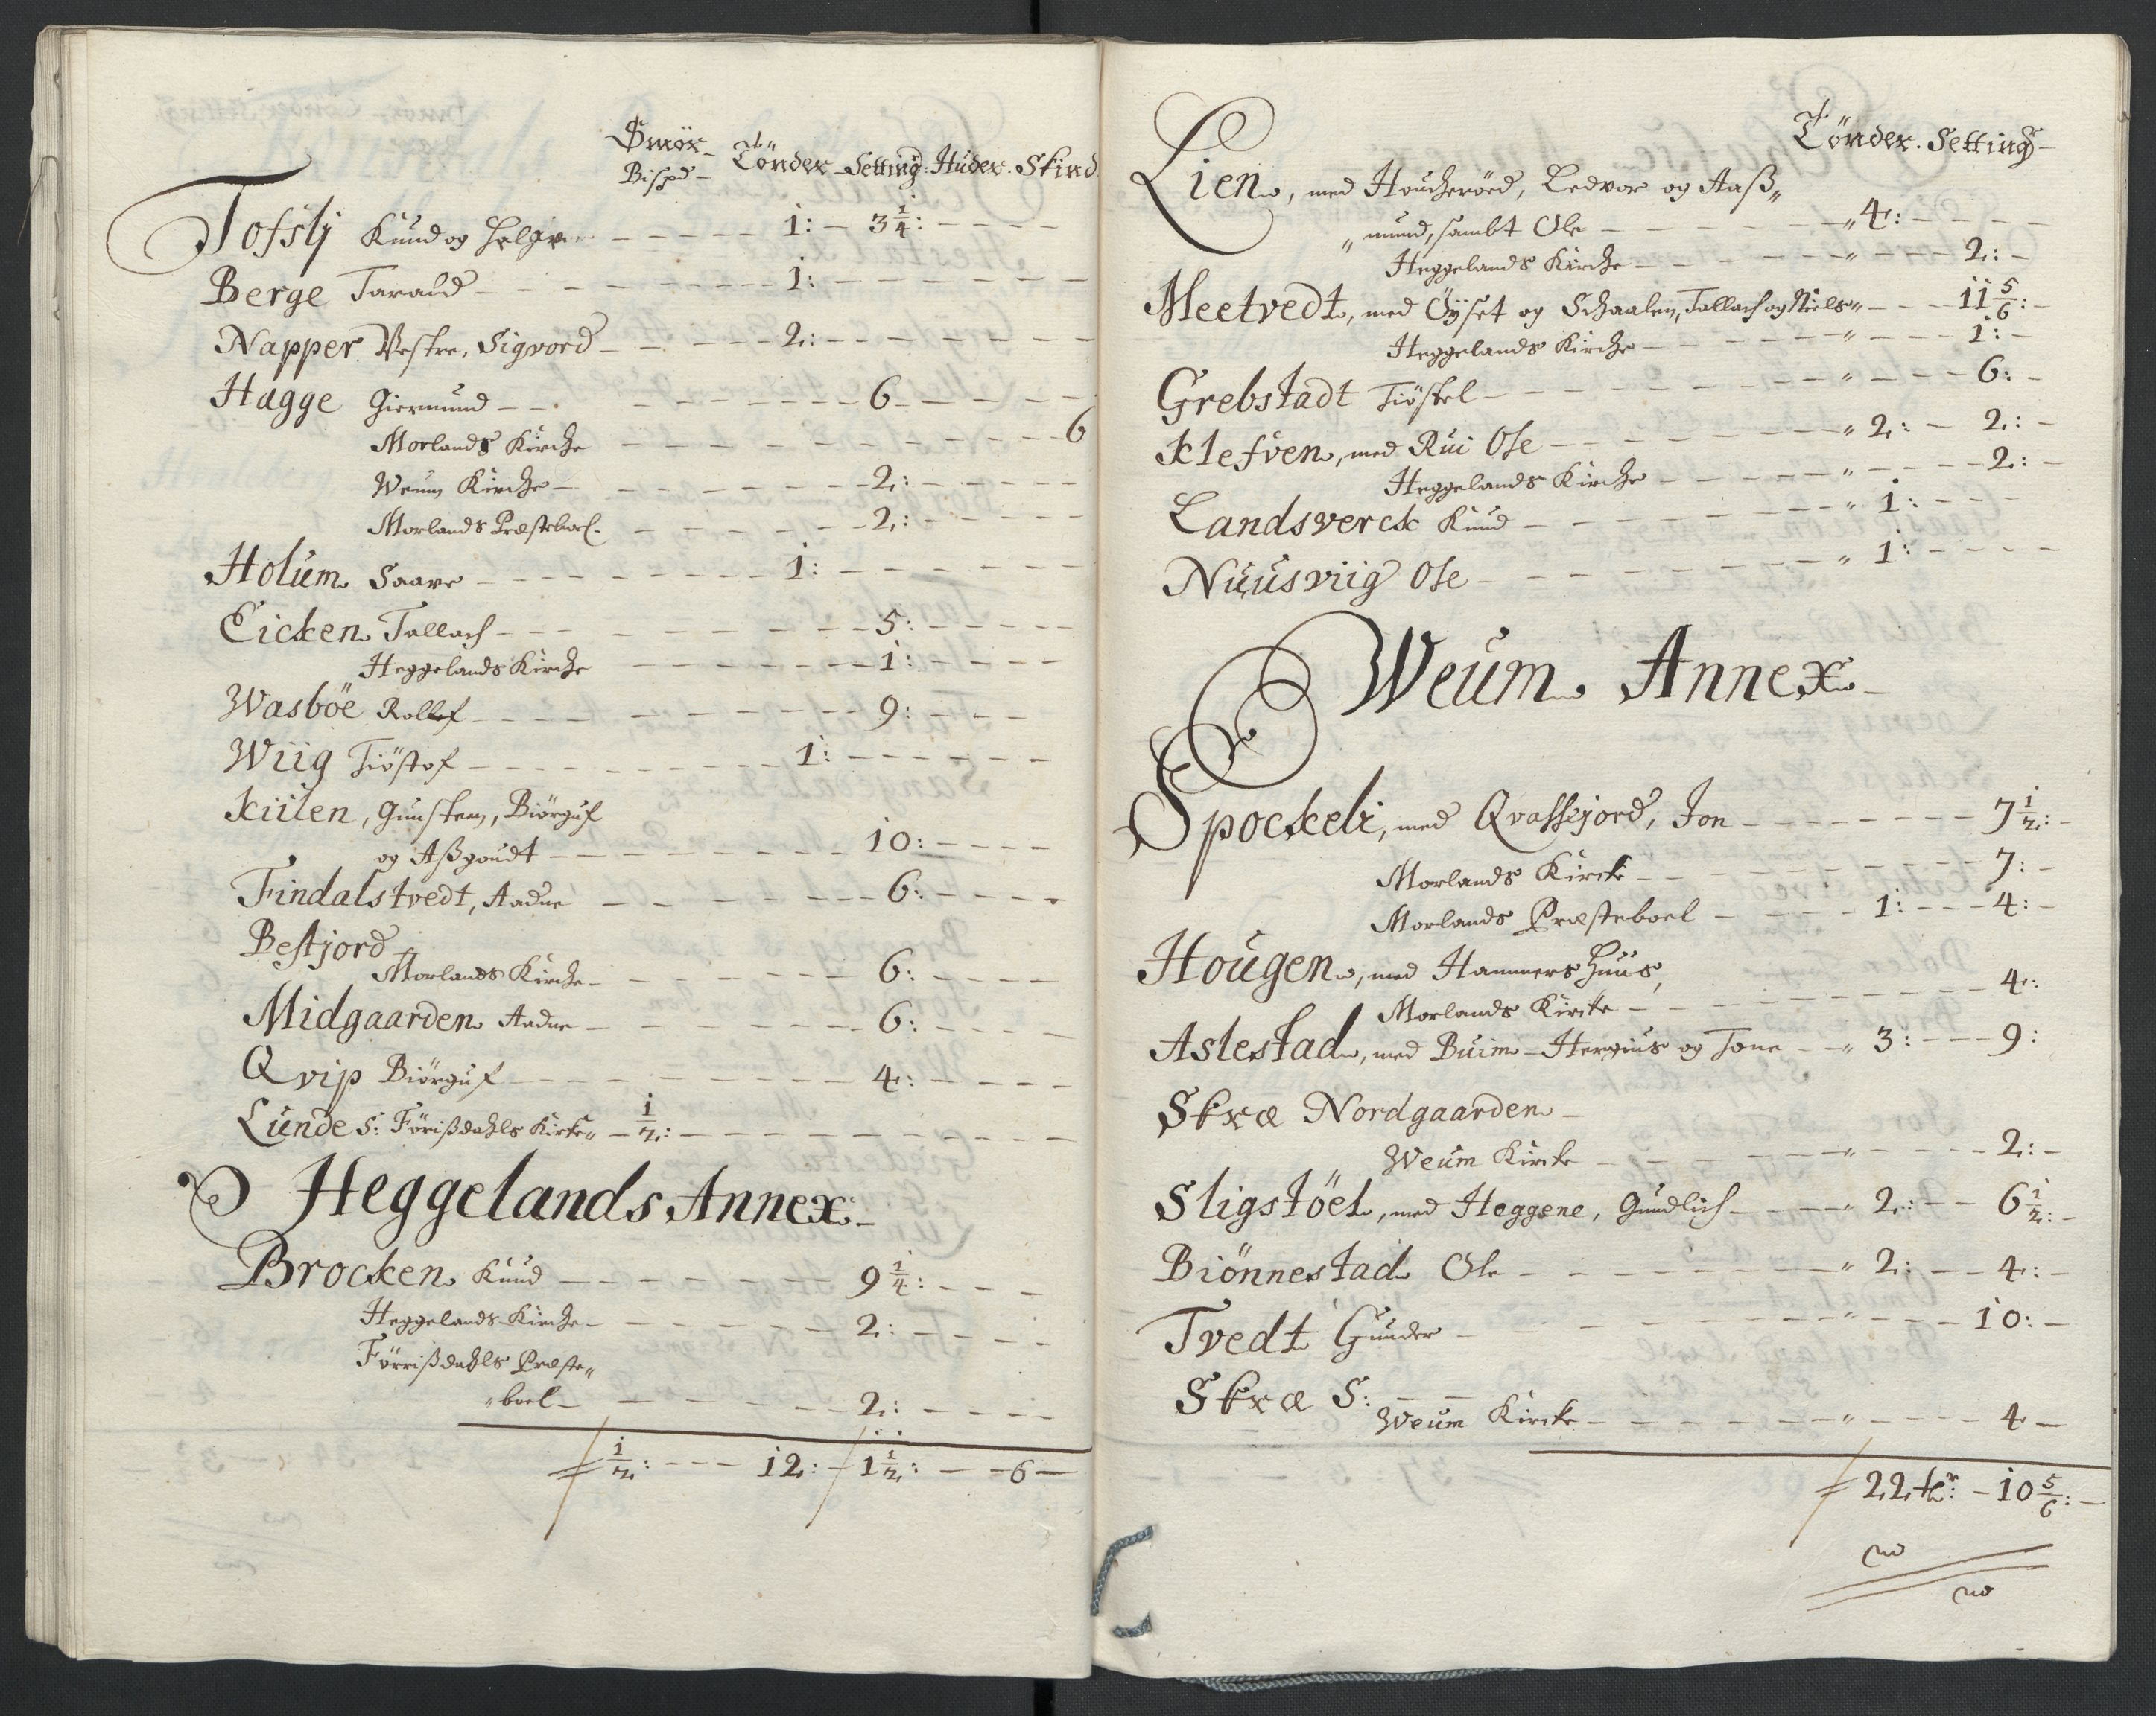 Smör
Bispd – Tönder – Setting: Huder. Skind
Tofslj Knud og Helge – 1: – 3 1/4:
Berge Tarald – 1:
Napper Vestre, Sigvord – 2:
Hagge Giermund – 6
Morlands Kirche – 6
Weum Kirche – 2:
Morlands Præsteboel – 2:
Holum Saave – 1:
Eicken Tallach – 5:
Heggelands Kirche – 1:
Wasböe Rollef – 9:
Wiig Tiöstof – 1:
Kiilen, Gunsten, Biörguf
og Aßgoudt – 10:
Findalstvedt, Aadne – 6:
Bestjord
Morlands Kirche – 6:
Midgaarden Aadne – 6:
Qvip Biörguf – 4:
Lunde S: Förißdahls Kirke„ – 1/2:
Heggelands Annex
Brocken Knud – 9 1/4:
Heggelands Kirche – 2:
Förrißdahls Præste„
„boel – 2:
1/2: – 12: – 1 1/2: – 6 –
Tönder. Setting
Lien, med Houcheröed, Ledvor og Aaß„
„mund, sambt Ole – „ 4:
Heggelands Kirche – „ – 2:
Meetvedt, med Öyset og Schaalen, Tallach og Niels„ – 11 5/6:
Heggelands Kirche – „ – 1:
Grebstadt Tiöstel – „ – 6:
Klefven, med Rui Ole – „ 2: – 2:
Heggelands Kirche – „ – 2:
Landsverck Knud – „ 1:
Nuusviig Ole – „ 1:
Weum Annex
Spockeli, med Qvassejord, Jon – 7 1/2:
Morlands Kircke – 7:
Morlands Præsteboel – 1: – 4:
Hougen, med Hammers Huus,
Morlands Kircke – 4:
Aslestad, med Buim – og Tone – „ 3: – 9:
Skræ Nordgaarden
Weum Kircke – „ – 2:
Sligstöel, med Heggene, Gundlich – „ 2: – 6 1/2:
Biönnestad Ole – „ 2: – 4:
Tvedt Gunder – „ – 10:
Skræ S:
Weum Kircke – „ – 4 –
22 tr: – 10 5/6: